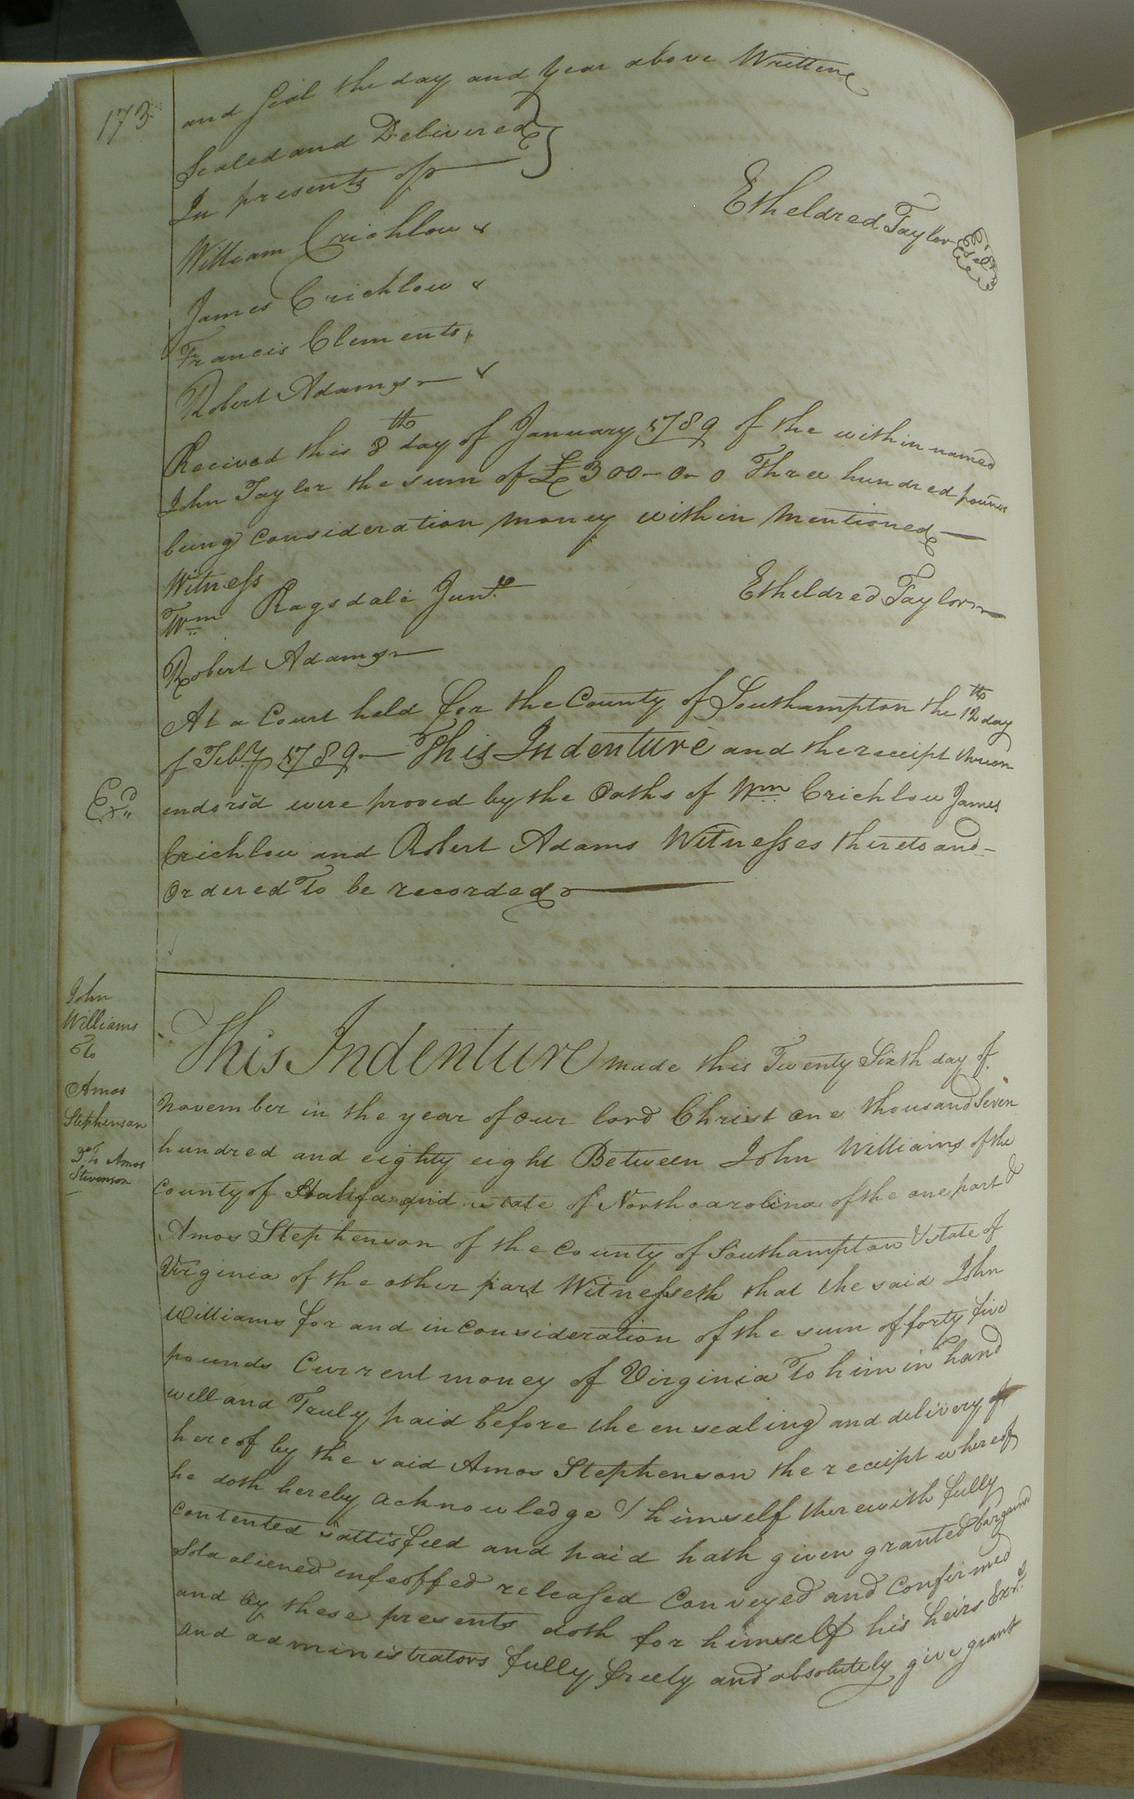 173
and Seal the day and Year above Written
Sealed and Delivered
In presents off
Etheldred Taylor Seal
William Crichlow x
James Crichlow x
Francis Clements
Robert Adams x
Recived this 8th day of January 1789 of the within named
John Taylor the sum of £300-0-0 Three hundred pounds
being Consideration money within Mentioned
Witness
Wm Ragsdale Junr
Etheldred Taylor
Robert Adams
At a Court held for the County of Southampton the 12th day
of Feby 1789 This Indenture and the receipt thereon
Exd
endorsd were proved by the Oaths of Wm Crichlow James
Crichlow and Robert Adams Witnesses thereto and
Ordered To be recorded
John
Williams
To
Amos
Stephenson
Dd To Amos
Stevenson
This Indenture made this Twenty Sixth day of
November in the year of Our lord Christ One thousand Seven
hundred and eighty eight Between John Williams of the
County of Halifax and state of North carolina of the one part &
Amos Stephenson of the County of Southampton & state of
Virginia of the other part Witnesseth that the said John
Williams for and in Consideration of the sum of forty five
pounds Current money of Virginia To him in hand
well and Truly paid before the ensealing and delivery
hereof by the said Amos Stephenson the receipt whereof
he doth hereby acknowledge & himself therewith fully
Contented sattisfied and paid hath given granted bargained
Sold aliened enfeoffed released Conveyed and Confirmed
and by these presents doth for himself his heirs Exrs
and administrators fully freely and absolutely give grant